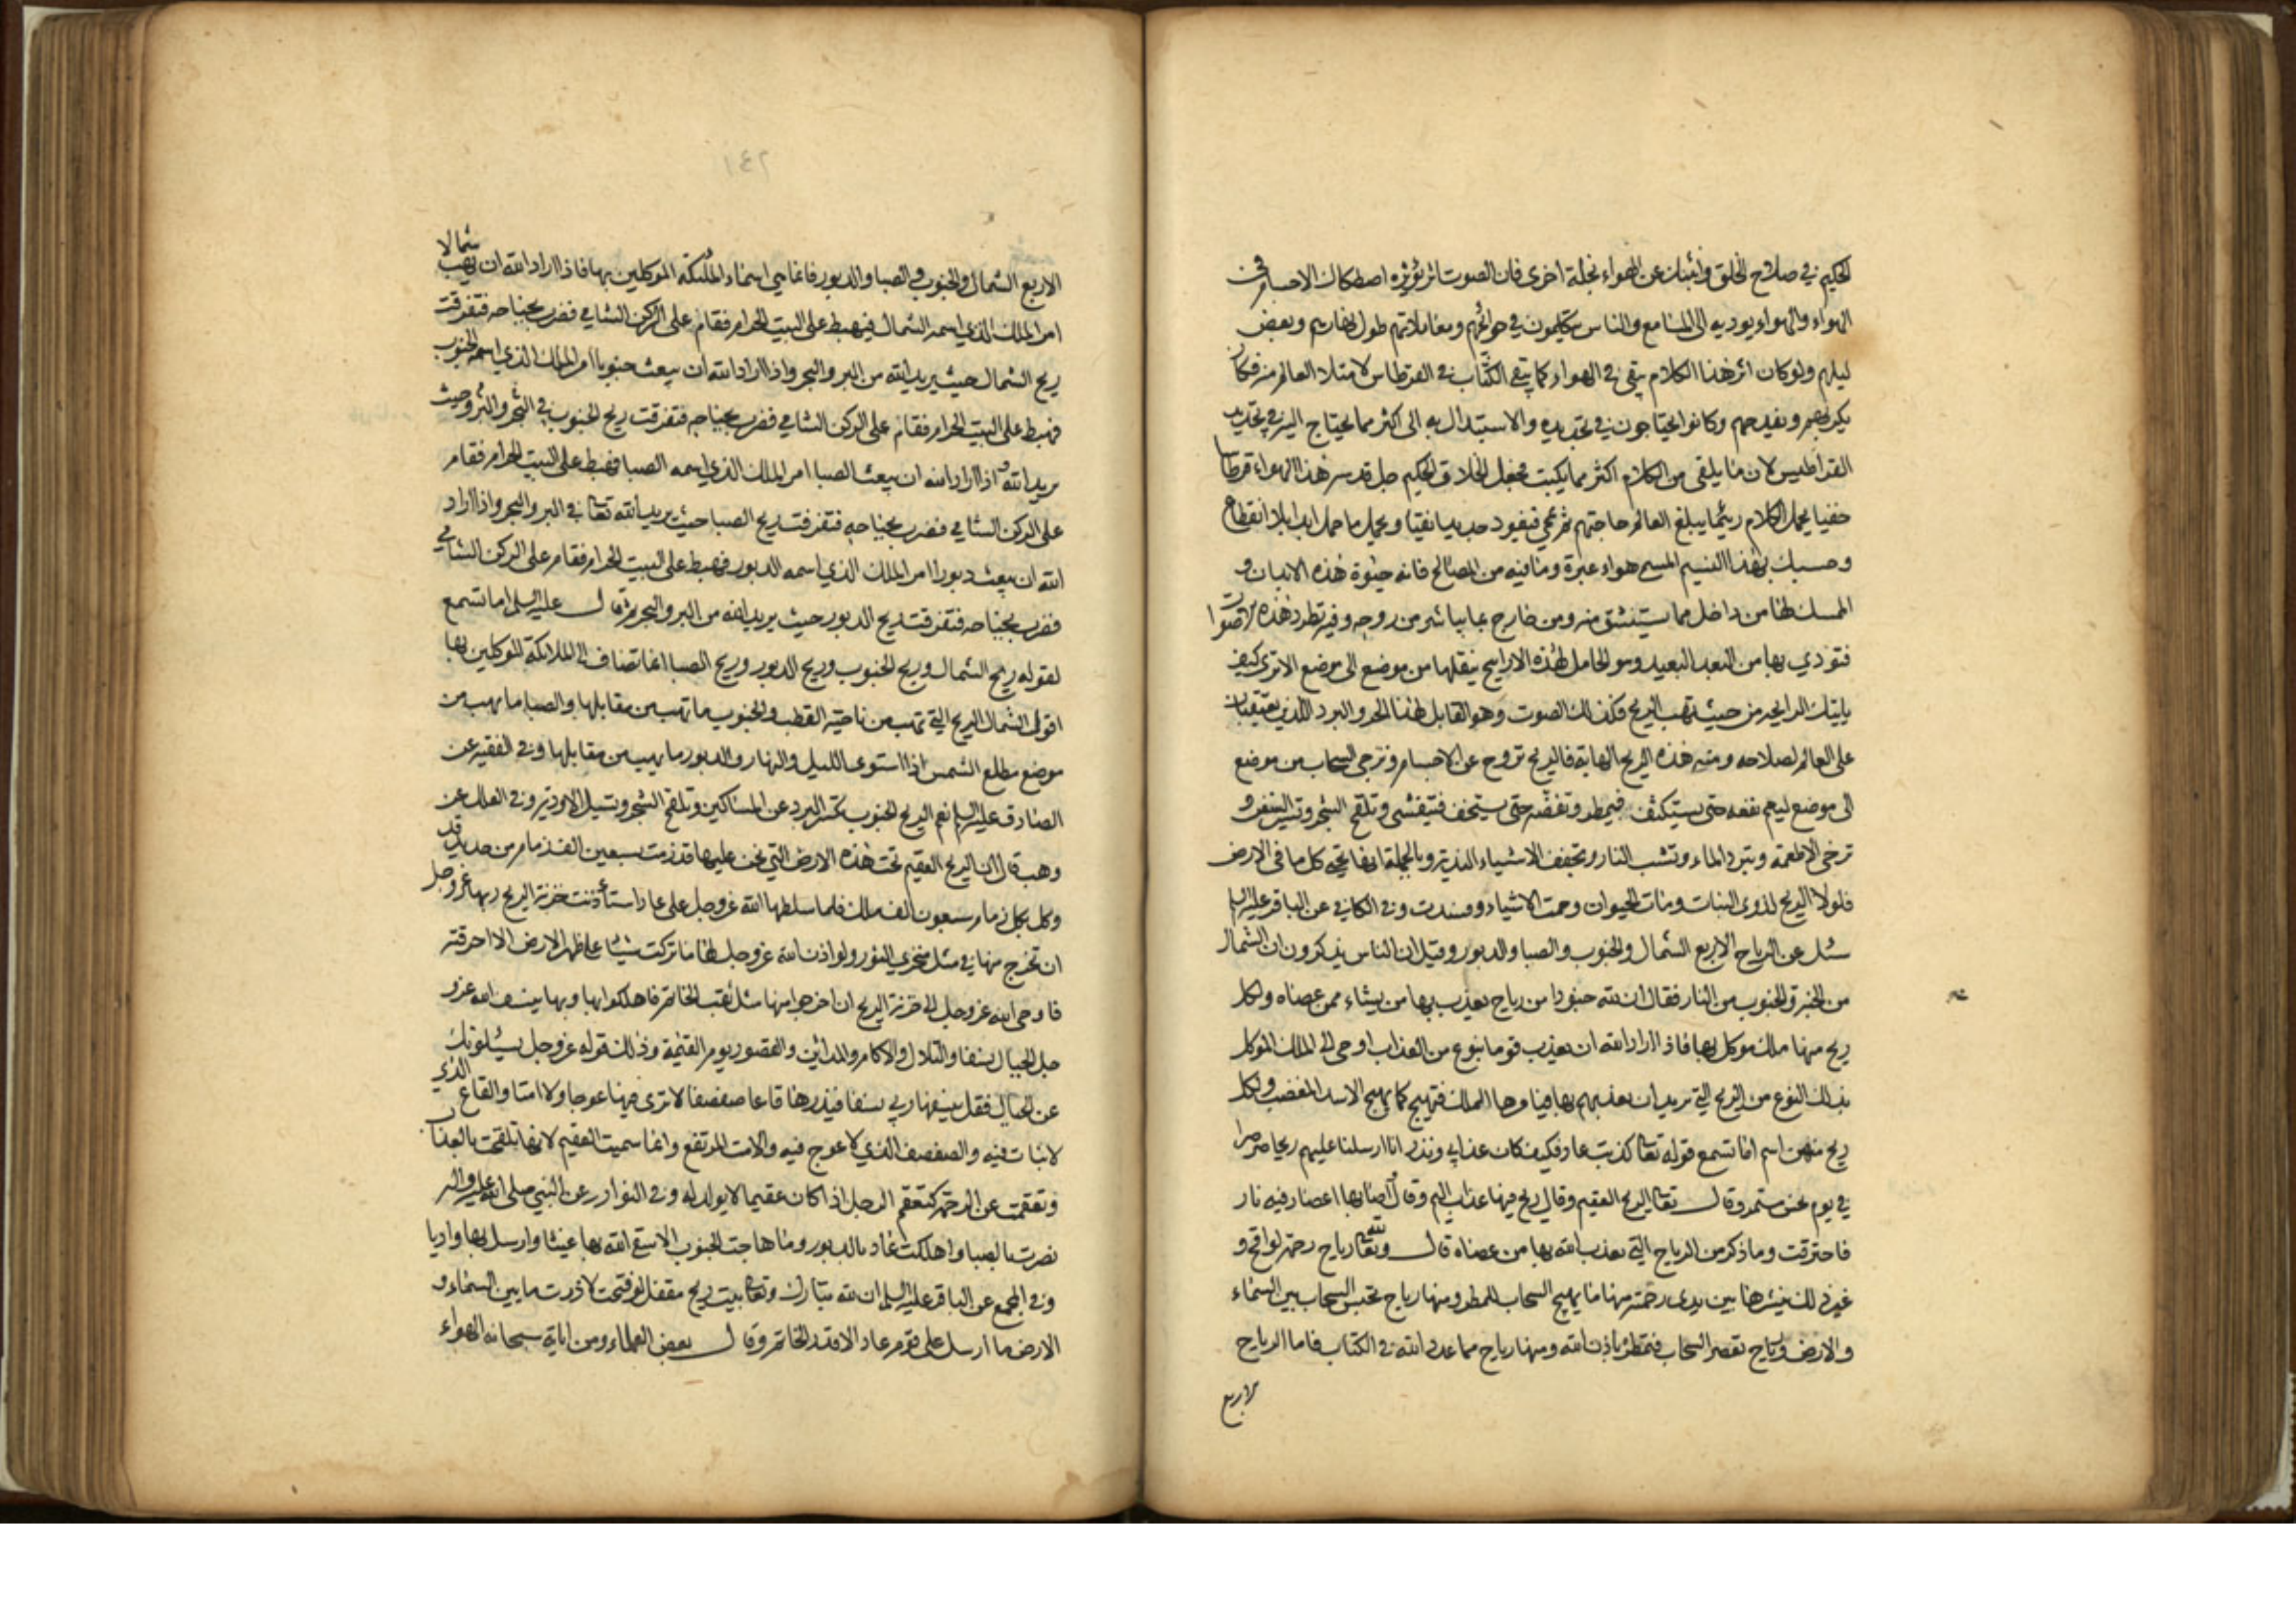 الحكيم في صلاح الخلق وانبئك عن الهواء بخلة اخرى فان الصوت اثر يؤثره اصطكاك الاجسام في
الهواء والهواء يوديه الى المسامع والناس يتكلمون في حوائجهم ومعاملاتهم طول نهارهم وبعض
ليلهم ولو كان اثر هذا الكلام يبقى في الهواء كما يبقى الكتاب في القرطاس لامتلا العالم منه فكان
يكربهم ويفدحهم وكانوا يحتاجون في تجديده والاستبدال به الى اكثر مما يحتاج اليه في تجديد
القراطيس لان ما يلقى من الكلام اكثر مما يكتب فجعل الخلاق الحكيم جل قدسه هذا الهواء قرطاسا
خفيا يحمل الكلام ريثما يبلغ العالم حاجتهم ثم يمحى فيعود جديدا نقيا ويحمل ما حمل ابدا بلا انقطاع
وحسبك بهذا النسيم المسمى هواء عبرة وما فيه من المصالح فانه حيوة هذه الابدان و
الممسك لها من داخل مما يستنشق منه ومن خارج بما يباشر من روحه وفيه تطرد هذه الاصوات
فتؤدي بها من البعد البعيد وهو الحامل لهذه الاراييح ينقلها من موضع الى موضع الا ترى كيف
ياتيك الرايحه من حيث تهب الريح فكذلك الصوت وهو القابل لهذا الحر والبرد اللذين يعتقبان
على العالم لصلاحه ومنه هذه الريح الهابة فالريح تروح عن الاجسام وتزجى السحاب من موضع
الى موضع ليعم نفعه حتى يستكثف فيمطر وتفضه حتى يستخف فيتفشى وتلقح الشجر وتسير السفن و
ترخى الاطعمة وتبرد الماء وتشب النار وتجفف الاشياء الندية وبالجملة انها تحيى كل ما فى الارض
فلولا الريح لذوى النبات ومات الحيوان وحمت الاشياء وفسدت وفى الكافي عن الباقر عليه السلم
سئل عن الرياح الاربع الشمال والجنوب والصبا والدبور وقيل ان الناس يذكرون ان الشمال
من الجنة والجنوب من النار فقال ان لله جنودا من رياح يعذب بها من يشاء ممن عصاه ولكل
ريح منها ملك موكل بها فاذا اراد الله ان يعذب قوما بنوع من العذاب اوحى الى الملك الموكل
بذلك النوع من الريح التي يريد ان يعذبهم بها فيامرها الملك فتهيج كما يهيج الاسد المغضب ولكل
ريح منهن اسم اما تسمع قوله تعالى كذبت عاد فكيف كان عذابي ونذر انا ارسلنا عليهم ريحا صرصرا
في يوم نحس مستمر وقال تعالى الريح العقيم وقال ريح فيها عذاب اليم وقال فاصابها اعصار فيه نار
فاحترقت وما ذكر من الرياح التي يعذب الله بها من عصاه قال ولله تعالى رياح رحمة لواقح و
غير ذلك ينشرها بين يدى رحمته منها ما يهيج السحاب للمطر ومنها رياح تحبس السحاب بين السماء
والارض ورياح تعصر السحاب فتمطر باذن الله ومنها رياح مما عدد الله في الكتاب فاما الرياح
الاربع
٢٤١
الاربع الشمال والجنوب والصبا والدبور فانما هي اسماء الملئكة الموكلين بها فاذا اراد الله ان يهب شمالا
امر الملك الذي اسمه الشمال فيهبط على البيت الحرام فقام على الركن الشامي فضرب بجناحه فتفرقت
ريح الشمال حيث يريد الله من البر والبحر واذا اراد الله ان يبعث جنوبا امر الملك الذي اسمه الجنوب
فهبط على البيت الحرام فقام على الركن الشامي فضرب بجناحه فتفرقت ريح الجنوب في البحر والبر وحيث
يريد الله واذا اراد الله ان يبعث الصبا امر الملك الذي اسمه الصبا فهبط على البيت الحرام فقام
على الركن الشامي فضرب بجناحه فتفرقت ريح الصبا حيث يريد الله تعالى في البر والبحر واذا اراد
الله ان يبعث دبورا امر الملك الذي اسمه الدبور فهبط على البيت الحرام فقام على الركن الشامي
فضرب بجناحه فتفرقت ريح الدبور حيث يريد الله من البر والبحر ثم قال عليه السلم اما تسمع
لقوله ريح الشمال وريح الجنوب وريح الدبور وريح الصبا انما تضاف الى الملائكة الموكلين بها
اقول الشمال الريح التي تهب من ناحية القطب والجنوب ما تهب من مقابلها والصبا ما يهب من
موضع مطلع الشمس اذا استوى الليل والنهار والدبور ما يهب من مقابلها وفى الفقيه عن
الصادق عليه السلم نعم الريح الجنوب تكسر البرد عن المساكين وتلقح الشجر وتسيل الاودية وفى العلل عن
وهب قال ان الريح العقيم تحت هذه الارض التي نحن عليها قد زمت بسبعين الف زمام من حديد قد
وكل بكل زمام سبعون الف ملك فلما سلطها الله عز وجل على عاد استأذنت خزنة الريح ربها عز وجل
ان تخرج منها في مثل منخري الثور ولو اذن الله عز وجل لها ما تركت شيئا على ظهر الارض الا احرقته
فاوحى الله عز وجل الى خزنة الريح ان اخرجوا منها مثل ثقب الخاتم فاهلكوا بها وبها ينسف الله عز و
جل الجبال نسفا والتلال والاكام والمداين والقصور يوم القيمة وذلك قوله عز وجل يسئلونك
عن الجبال فقل ينسفها ربي نسفا فيذرها قاعا صفصفا لا ترى فيها عوجا ولا امتا والقاع الذي
لا نبات فيه والصفصف الذي لا عوج فيه والامت المرتفع وانما سميت العقيم لانها تلقحت بالعذاب
وتعقمت عن الرحمة كتعقم الرجل اذا كان عقيما لا يولد له وفى النوادر عن النبي صلى الله عليه واله
نصرت بالصبا واهلكت عاد بالدبور وما هاجت الجنوب الا سقى الله بها غيثا وارسل بها واديا
وفى المجمع عن الباقر عليه السلم ان لله تبارك وتعالى بيت ريح مقفل لو فتحت لاذرت ما بين السماء و
الارض ما ارسل على قوم عاد الا قدر الخاتم وقال بعض العلماء ومن اياته سبحانه الهواء